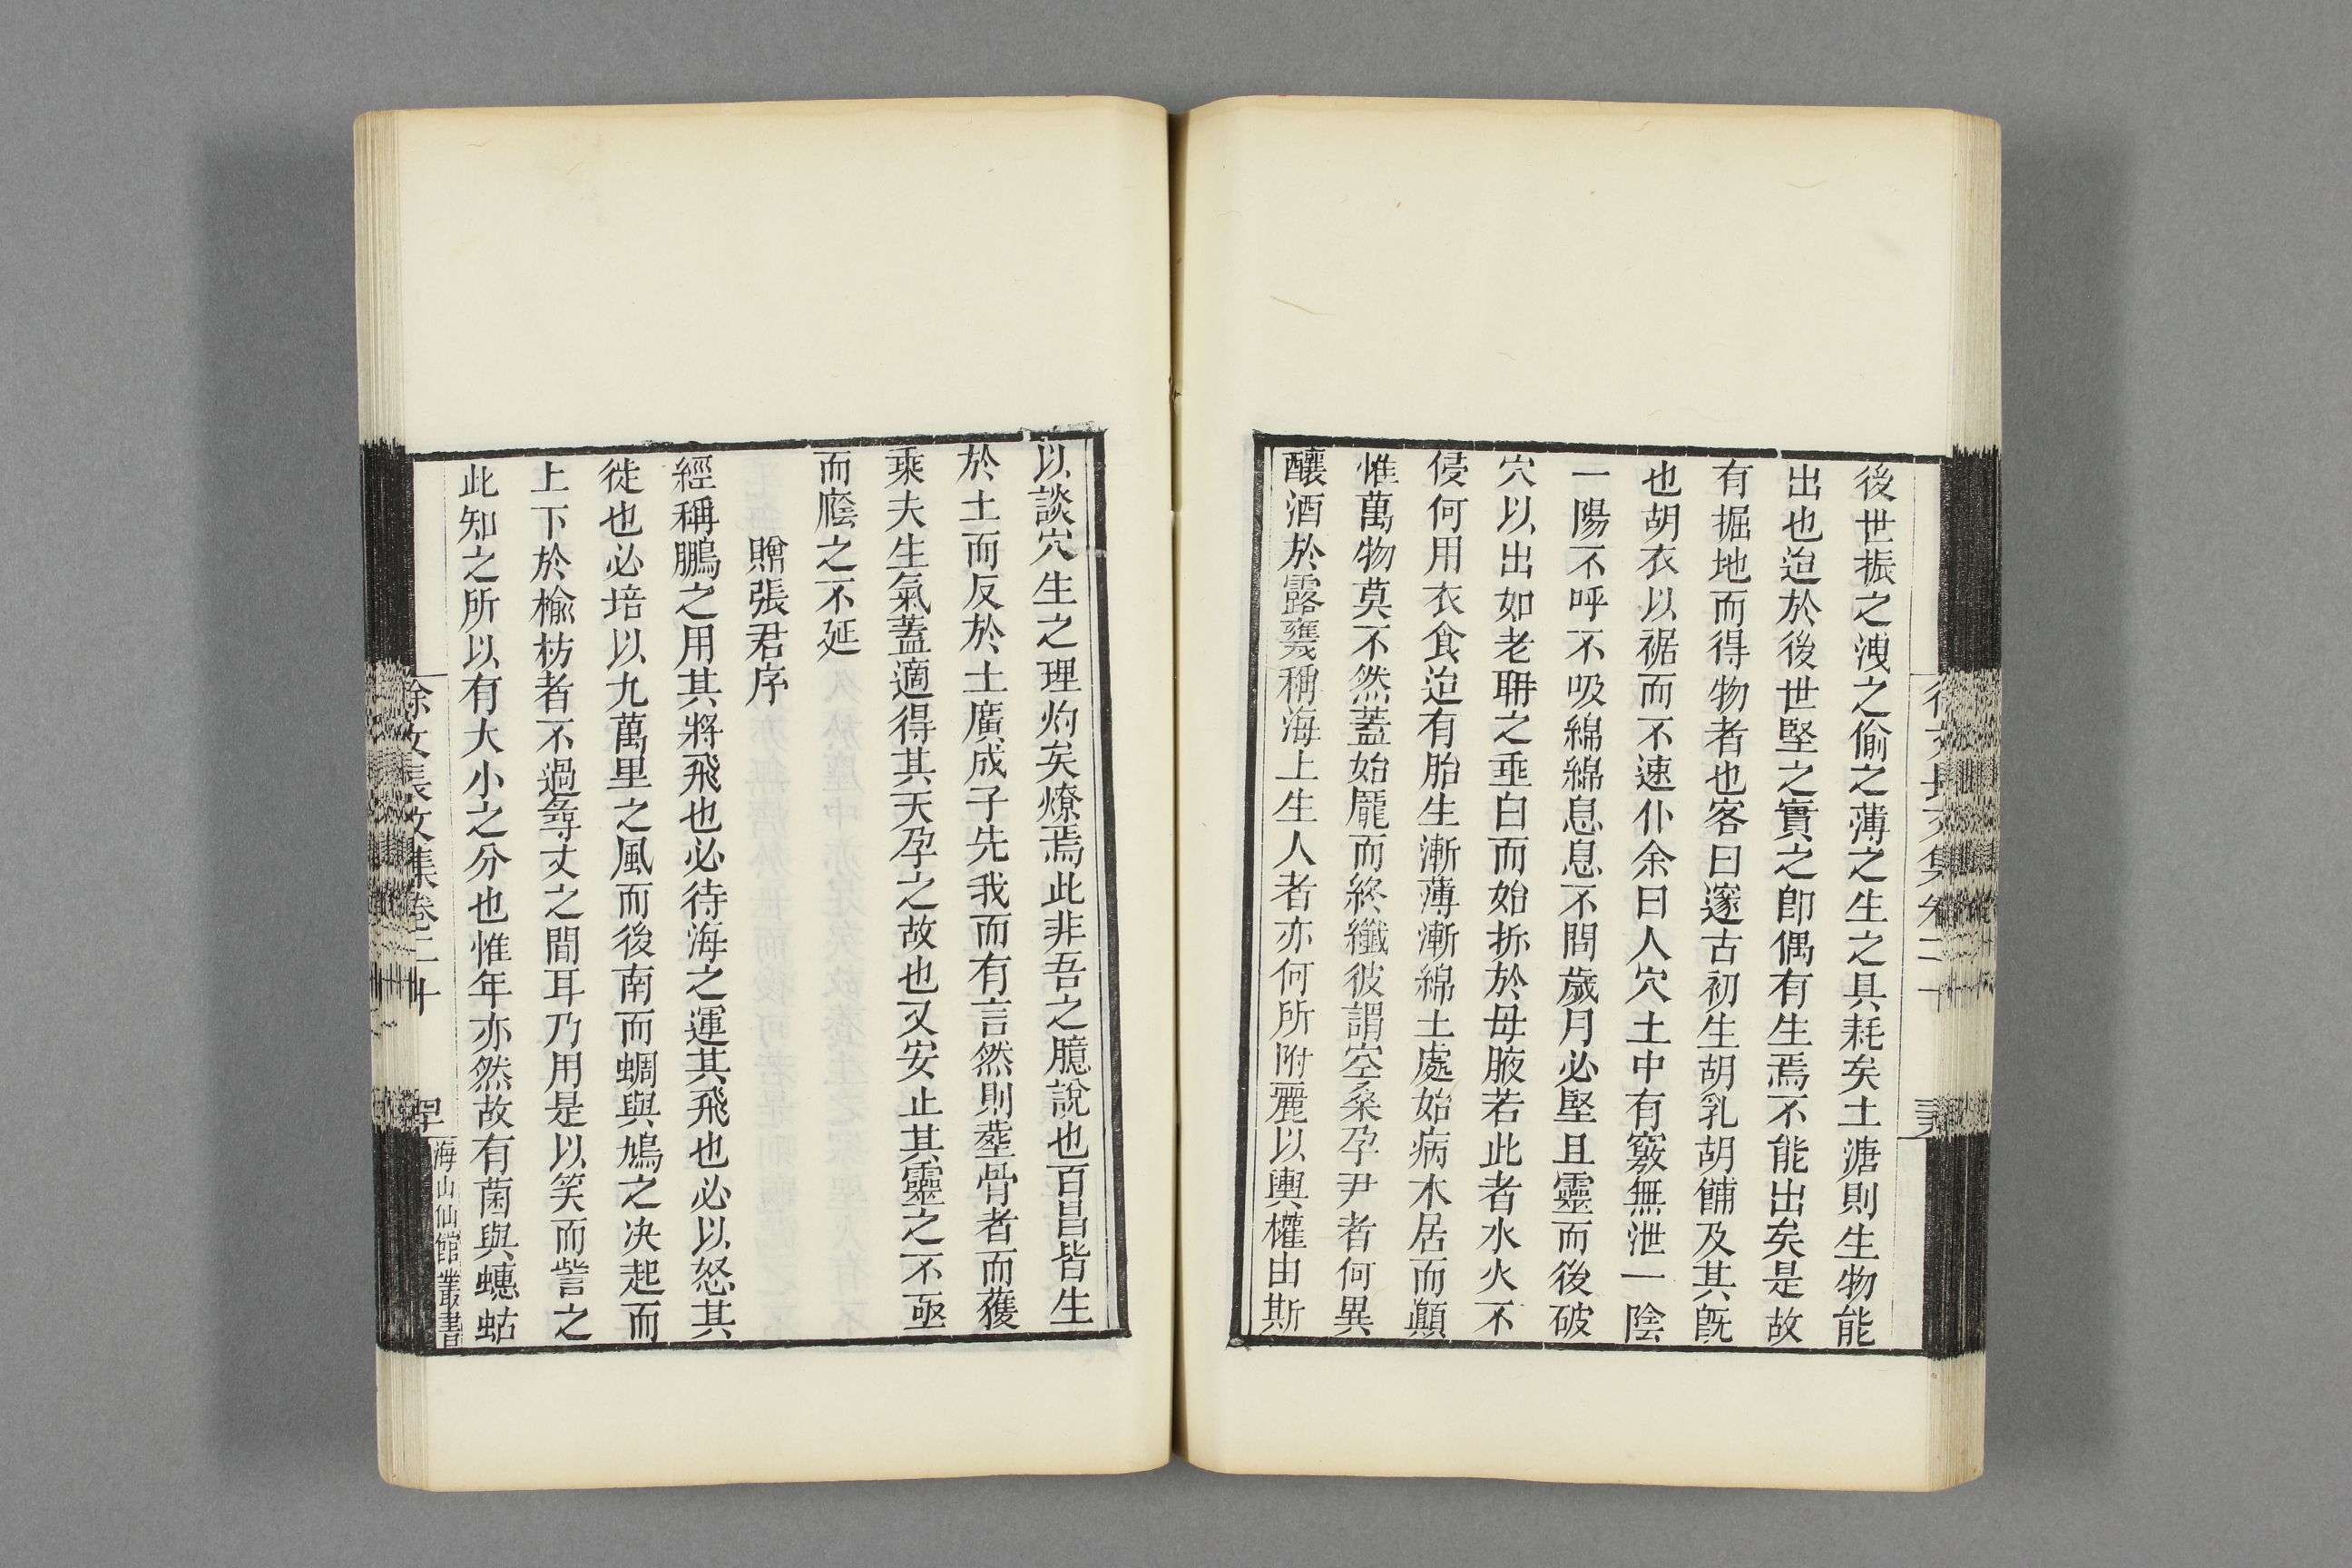 後世振之洩之偷之薄之生之具耗矣土溏則生物能
出也迨於後世堅之實之卽偶有生焉不能出矣是故
有掘地而得物者也客曰邃古初生胡乳胡餔及其旣
也胡衣以裾而不速仆余曰人穴土中有竅無泄一陰
一陽不呼不吸綿綿息息不問歲月必堅且靈而後破
穴以出如老聃之垂白而始拆於母腋若此者水火不
侵何用衣食迨有胎生漸薄漸綿土處始病木居而顚
惟萬物莫不然蓋始厖而終纖彼謂空桑孕尹者何異
釀酒於露甕稱海上生人者亦何所附麗以輿權由斯
徐文長文集卷二十
以談穴生之理灼矣燎焉此非吾之臆說也百昌皆生
於土而反於土廣成子先我而有言然則塟骨者而獲
乘夫生氣蓋適得其天孕之故也又安止其靈之不亟
而廕之不延
贈張君序
經稱鵬之用其將飛也必待海之運其飛也必以怒其
徙也必培以九萬里之風而後南而蜩與鳩之决起而
上下於榆枋者不過尋丈之間耳乃用是以笑而訾之
此知之所以有大小之分也惟年亦然故有菌與蟪蛄
徐文長文集卷二十
海山仙館叢書